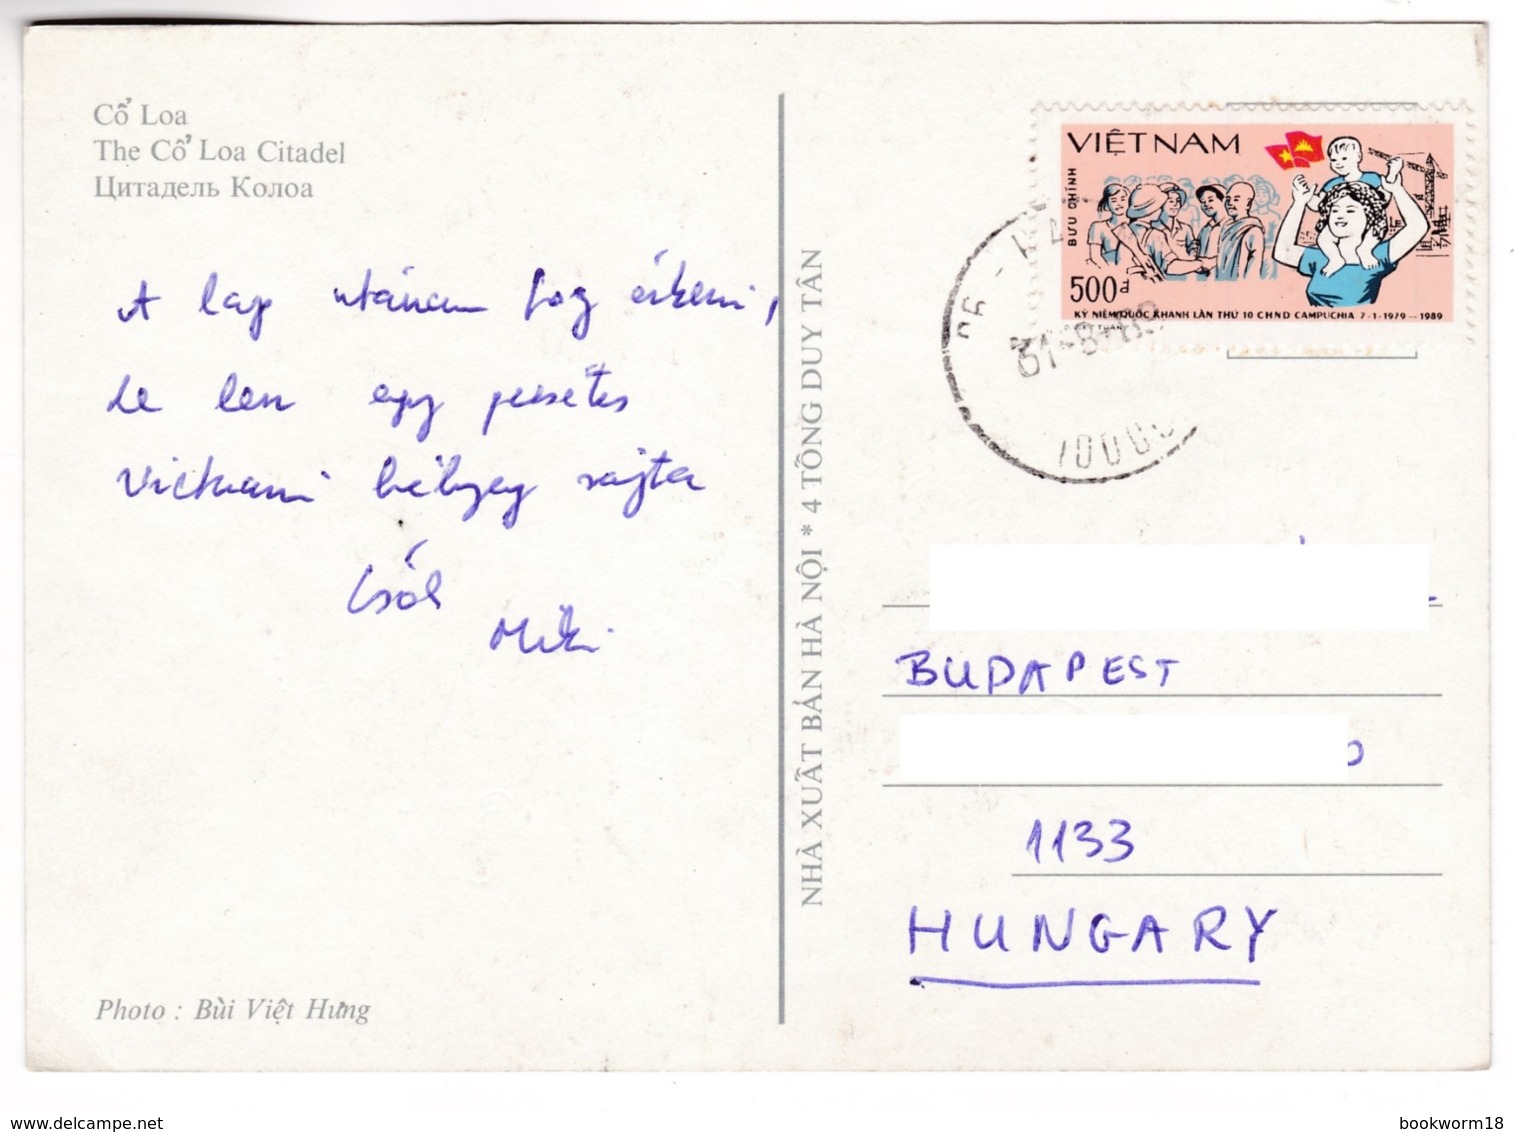 Cổ Loa
The Cổ Loa Citadel
Цитадель Колоа
A lap utánam fog érkezni,
de lesz egy pecsétes
Vietnami bélyeg rajta
Csók
Miki
Photo : Bùi Việt Hưng
NHÀ XUẤT BẢN HÀ NỘI * 4 TỐNG DUY TÂN
VIỆT NAM
BƯU CHÍNH
500đ
KỶ NIỆM QUỐC KHÁNH LẦN THỨ 10 CHND CAMPUCHIA 7-1-1979-1989
31-8-89
BUDAPEST
1133
HUNGARY
www.delcampe.net
bookworm18